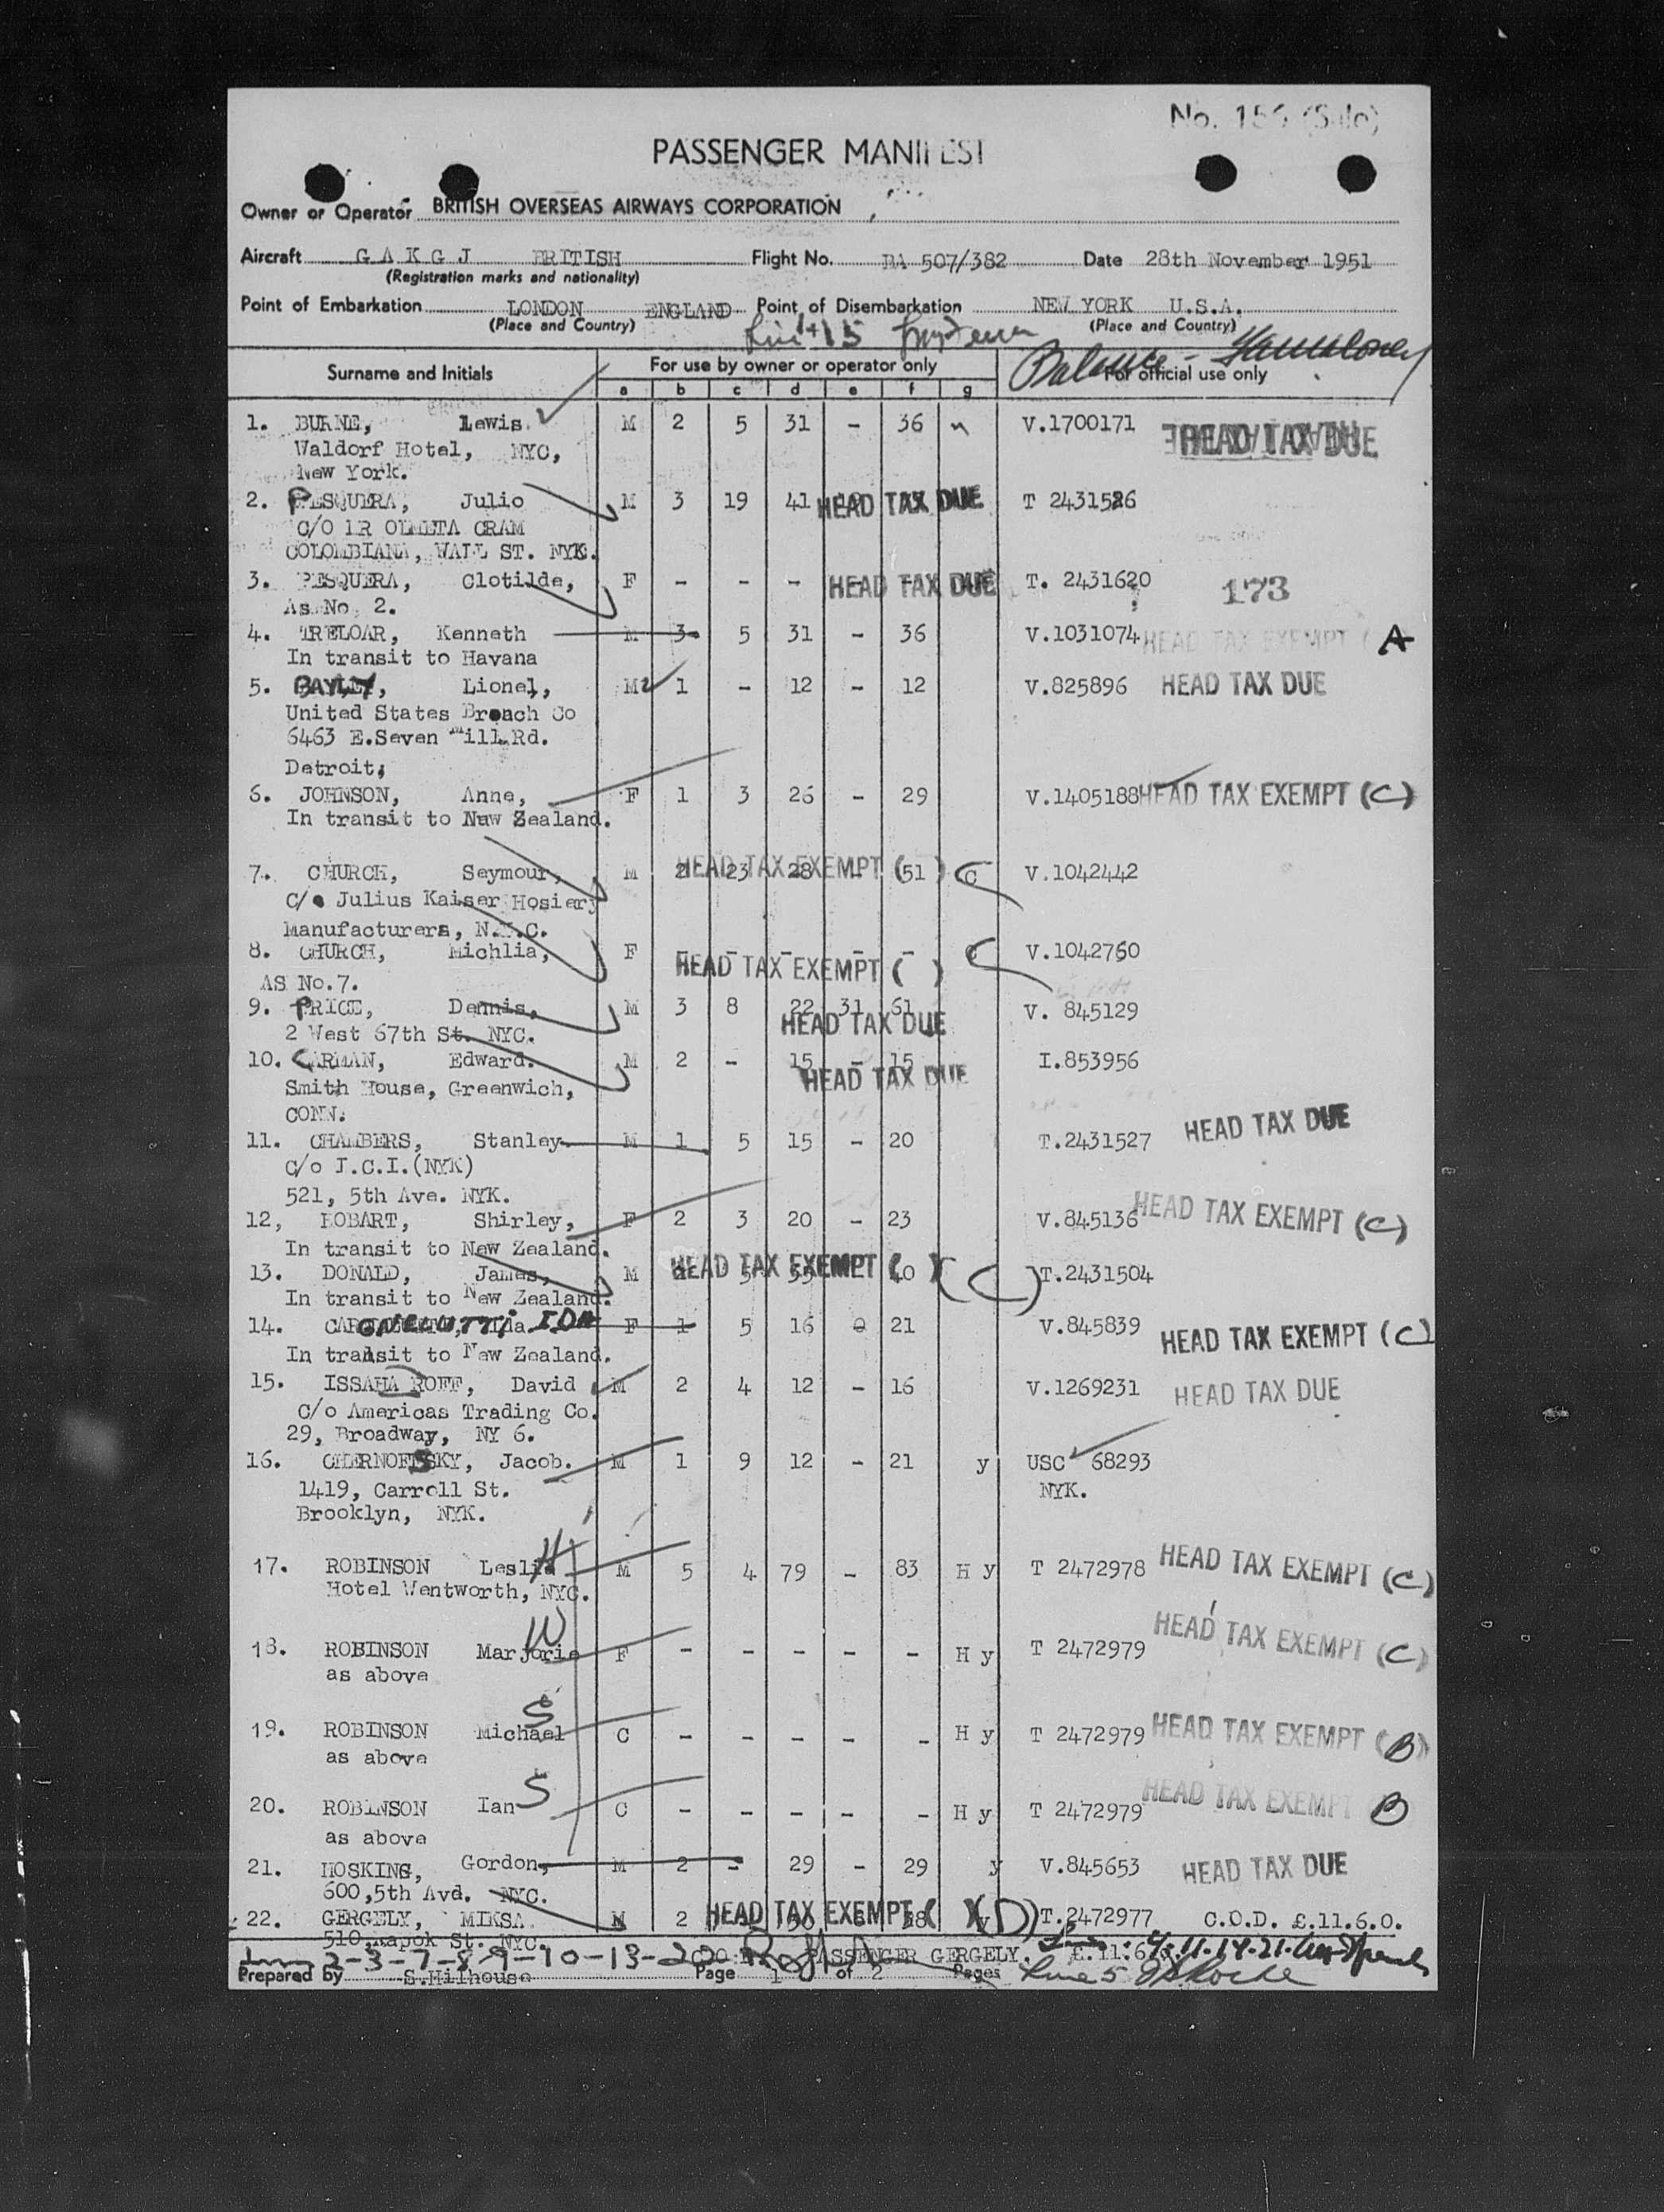 PASSENGER MANIFEST
Owner or Operator BRITISH OVERSEAS AIRWAYS CORPORATION
Aircraft G A K G J BRITISH Flight No. BA 507/382 Date 28th November 1951
(Registration marks and nationality)
Point of Embarkation LONDON ENGLAND Point of Disembarkation NEW YORK U.S.A.
(Place and Country) (Place and Country)
Balance -
Surname and Initials For use by owner or operator only For official use only
a b c d e f g
1. BURNE, Lewis. M 2 5 31 - 36 V.1700171 HEAD TAX DUE
Waldorf Hotel, NYC,
New York.
2. PESQUERA, Julio M 3 19 41 HEAD TAX DUE T 2431526
C/O DR OLMETA GRAM
COLOMBIANA, WALL ST. NYK.
3. PESQUERA, Clotilde, F - - - HEAD TAX DUE T. 2431620 173
As No 2.
4. TRELOAR, Kenneth M 3 5 31 - 36 V.1031074 HEAD TAX EXEMPT ( A
In transit to Havana
5. BAYLEY, Lionel, M 1 - 12 - 12 V.825896 HEAD TAX DUE
United States Broach Co
6463 E.Seven Mill Rd.
Detroit,
6. JOHNSON, Anne, F 1 3 26 - 29 V.1405188 HEAD TAX EXEMPT (C)
In transit to New Zealand.
7. CHURCH, Seymour, M 2 23 28 - 51 HEAD TAX EXEMPT ( ) C V.1042442
C/o Julius Kaiser Hosiery
Manufacturers, N.Y.C.
8. CHURCH, Michlia, F - - - - - HEAD TAX EXEMPT ( ) C V.1042760
AS No.7.
9. PRICE, Dennis, M 3 8 22 31 61 HEAD TAX DUE V. 845129
2 West 67th St. NYC.
10. CARMAN, Edward. M 2 - 15 - 15 HEAD TAX DUE I.853956
Smith House, Greenwich,
CONN.
11. CHAMBERS, Stanley M 1 5 15 - 20 T.2431527 HEAD TAX DUE
C/o I.C.I.(NYK)
521, 5th Ave. NYK.
12, HOBART, Shirley, F 2 3 20 - 23 V.845136 HEAD TAX EXEMPT (C)
In transit to New Zealand.
13. DONALD, James, M 5 40 HEAD TAX EXEMPT ( ) (C) T.2431504
In transit to New Zealand.
14. IDA F 1 5 16 0 21 V.845839 HEAD TAX EXEMPT (C)
In transit to New Zealand.
15. ISSAHAROFF, David M 2 4 12 - 16 V.1269231 HEAD TAX DUE
C/o Americas Trading Co.
29, Broadway, NY 6.
16. CHERNOFSKY, Jacob. M 1 9 12 - 21 y USC 68293
1419, Carroll St. NYK.
Brooklyn, NYK.
17. ROBINSON Leslie H M 5 4 79 - 83 H y T 2472978 HEAD TAX EXEMPT (C)
Hotel Wentworth, NYC.
18. ROBINSON Marjorie W F - - - - - H y T 2472979 HEAD TAX EXEMPT (C)
as above
19. ROBINSON Michael S C - - - - - H y T 2472979 HEAD TAX EXEMPT (B)
as above
20. ROBINSON Ian S C - - - - - H y T 2472979 HEAD TAX EXEMPT B
as above
21. HOSKING, Gordon, M 2 - 29 - 29 y V.845653 HEAD TAX DUE
600,5th Avd. NYC.
22. GERGELY, MIKSA M 2 HEAD TAX EXEMPT ( ) (D) T.2472977 C.O.D. £.11.6.0.
510,Kapok St. NYC
2-3-7-8-9-10-13-20 PASSENGER GERGELY.
Prepared by S.Milhouse Page 1 of 2 Pages Line 5